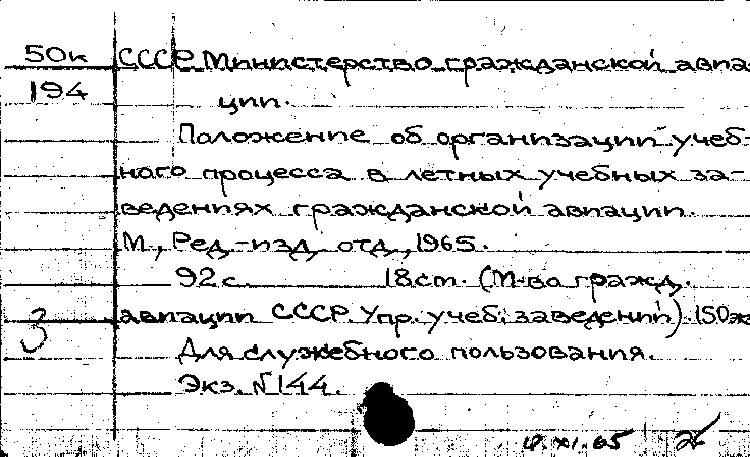 50к СССР. Министерство гражданской авиа
194 ции.
Положение об организации учеб-
ного процесса в летных учебных за-
ведениях гражданской авиации.
М., Ред.-изд. отд., 1965.
92 с. 18 cm. (М-во гражд.
авиации СССР. Упр. учеб. заведений). 150 эк
З
Для служебного пользования.
Экз. № 144.
XI.65